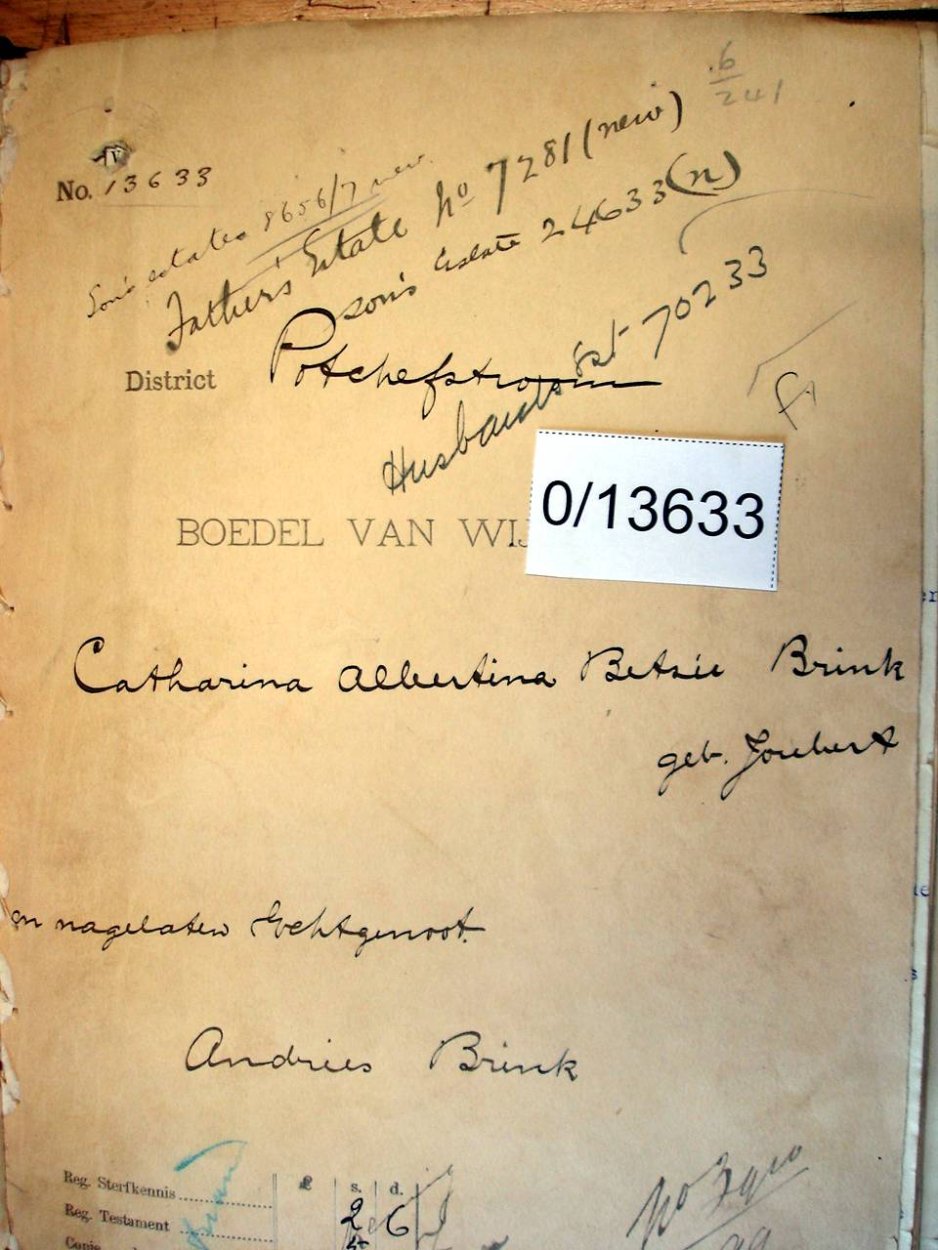 6
241
No. 13633
Son's estates 8656/7 new
Father's Estate No 7281 (new)
son's Estate 24633 (n)
District Potchefstroom
Husband's Est 70233
0/13633
BOEDEL VAN WIJ
Catharina Albertina Betsie Brink
geb. Joubert
en nagelaten Echtgenoot
Andries Brink
£ s. d.
Reg. Sterfkennis
Reg. Testament 2 6